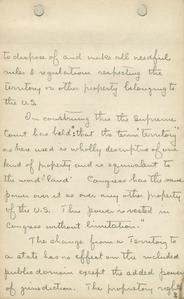 to dispose of and make all needful
rules & regulations respecting the
territory or other property belonging to
the U.S.
In construing this the Supreme
Court has held: that the term "territory"
as here used is wholly descriptive of one
kind of property and is equivalent to
the word 'land'. Congress has the same
power over it as over any other property
of the U.S. This power is vested in
Congress without limitation."
"The change from a Territory to
a state has no effect on the included
public domain except the added power
of jurisdiction. The propriatary rights